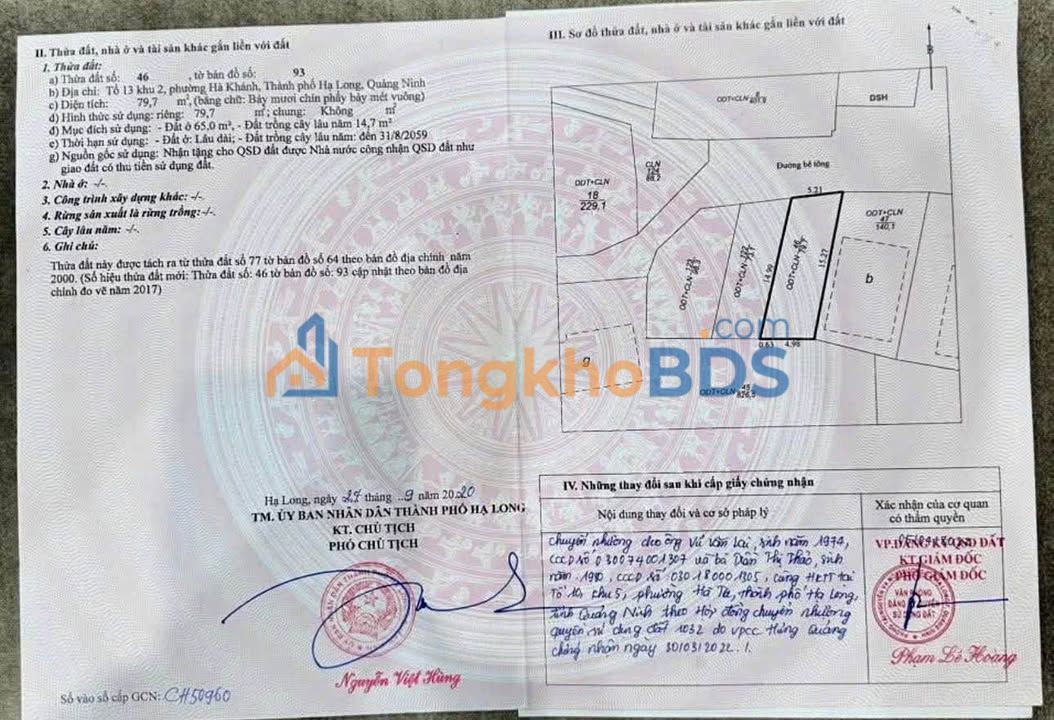 II. Thửa đất, nhà ở và tài sản khác gắn liền với đất
1. Thửa đất:
a) Thửa đất số: 46 , tờ bản đồ số: 93
b) Địa chỉ: Tổ 13 khu 2, phường Hà Khánh, Thành phố Hạ Long, Quảng Ninh
c) Diện tích: 79,7 m², (bằng chữ: Bảy mươi chín phẩy bảy mét vuông)
d) Hình thức sử dụng: riêng: 79,7 m²; chung: Không m²
đ) Mục đích sử dụng: - Đất ở 65,0 m², - Đất trồng cây lâu năm 14,7 m²
e) Thời hạn sử dụng: - Đất ở: Lâu dài; - Đất trồng cây lâu năm: đến 31/8/2059
g) Nguồn gốc sử dụng: Nhận tặng cho QSD đất được Nhà nước công nhận QSD đất như
giao đất có thu tiền sử dụng đất.
2. Nhà ở: -/-.
3. Công trình xây dựng khác: -/-.
4. Rừng sản xuất là rừng trồng:-/-.
5. Cây lâu năm: -/-.
6. Ghi chú:
Thửa đất này được tách ra từ thửa đất số 77 tờ bản đồ số 64 theo bản đồ địa chính năm
2000. (Số hiệu thửa đất mới: Thửa đất số: 46 tờ bản đồ số: 93 cập nhật theo bản đồ địa
chính đo vẽ năm 2017)
Hạ Long, ngày 27 tháng 9 năm 2020
TM. ỦY BAN NHÂN DÂN THÀNH PHỐ HẠ LONG
KT. CHỦ TỊCH
PHÓ CHỦ TỊCH
Nguyễn Việt Hùng
Số vào sổ cấp GCN: CH50960
III. Sơ đồ thửa đất, nhà ở và tài sản khác gắn liền với đất
B
ODT+CLN
DSH
CLN
Đường bê tông
ODT+CLN
18
229,1
5.21
ODT+CLN
47
140,1
ODT+CLN
ODT+CLN
14.99
ODT+CLN 46
79,7
15.27
b
g
0.63
4.98
ODT+CLN 45
826,5
TongkhoBDS
.com
IV. Những thay đổi sau khi cấp giấy chứng nhận
Nội dung thay đổi và cơ sở pháp lý
Xác nhận của cơ quan
có thẩm quyền
chuyển nhượng cho ông Vũ Văn Lai, sinh năm 1974,
CCCD số 030074001307 và bà Dần Thị Thảo, sinh
năm 1980, CCCD số 030180001305, cùng HKTT tại
Tổ 10, khu 5, phường Hà Tu, thành phố Hạ Long,
tỉnh Quảng Ninh theo Hợp đồng chuyển nhượng
quyền sử dụng đất 1032 do VPCC Hùng Quảng
chứng nhận ngày 30/03/2022./.
VP.ĐĂNG KÝ QSD ĐẤT
KT.GIÁM ĐỐC
PHÓ GIÁM ĐỐC
VĂN PHÒNG
ĐĂNG KÝ QUYỀN
SỬ DỤNG ĐẤT
Phạm Lê Hoàng